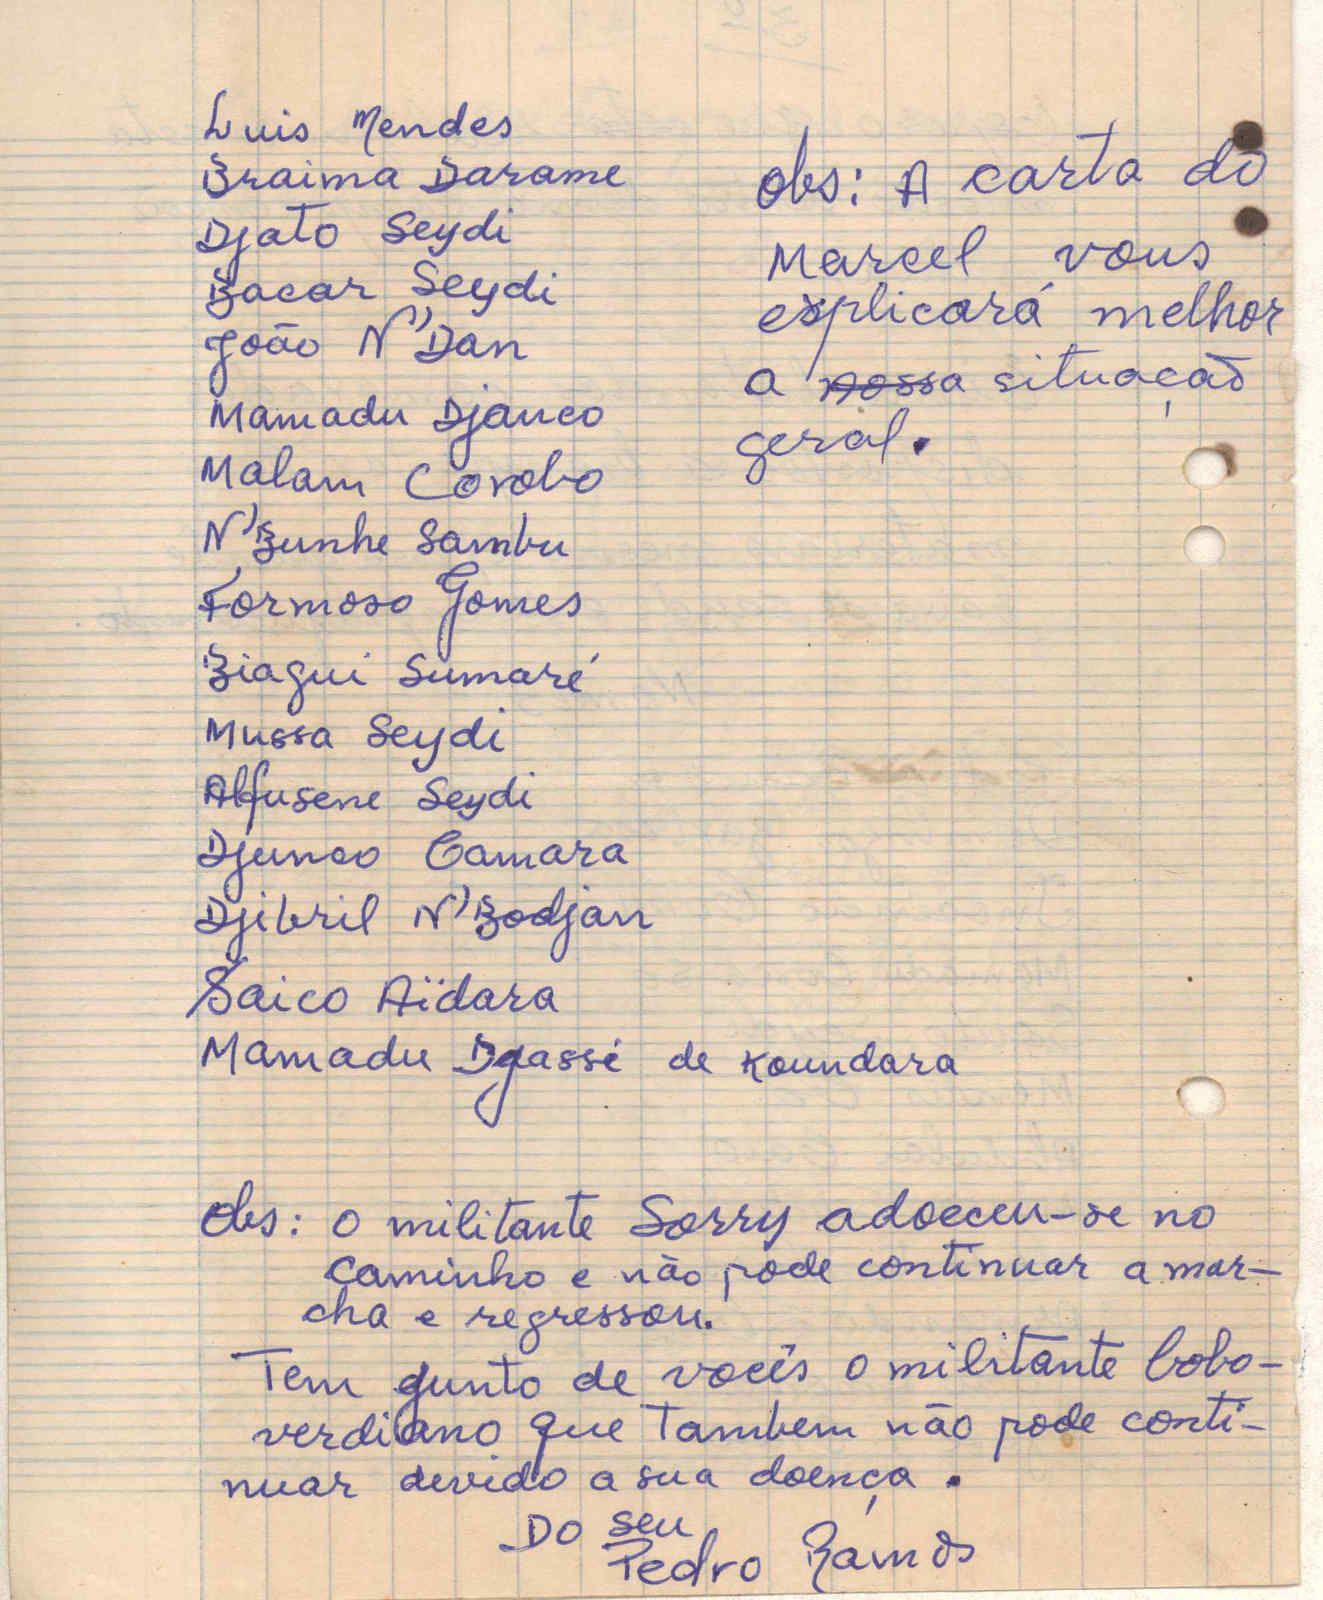 Luis Mendes
Braima Darame
Djato Seydi
Bacar Seydi
João N'Dan
Mamadu Djanco
Malam Corobo
N'Bunhe Sambu
Formoso Gomes
Biagui Sumaré
Mussa Seydi
Alfusene Seydi
Djunco Camara
Djibril N'Bodjan
Saico Aïdara
Mamadu Djassé de Koundara
obs: A carta do
Marcel vous
explicará melhor
a nossa situação
geral.
Obs: O militante Sorry adoeceu-se no
caminho e não pode continuar a mar-
cha e regressou.
Tem junto de vocês o militante Cobo-
verdiano que Tambem não pode conti-
nuar devido a sua doença.
Do seu
Pedro Ramos